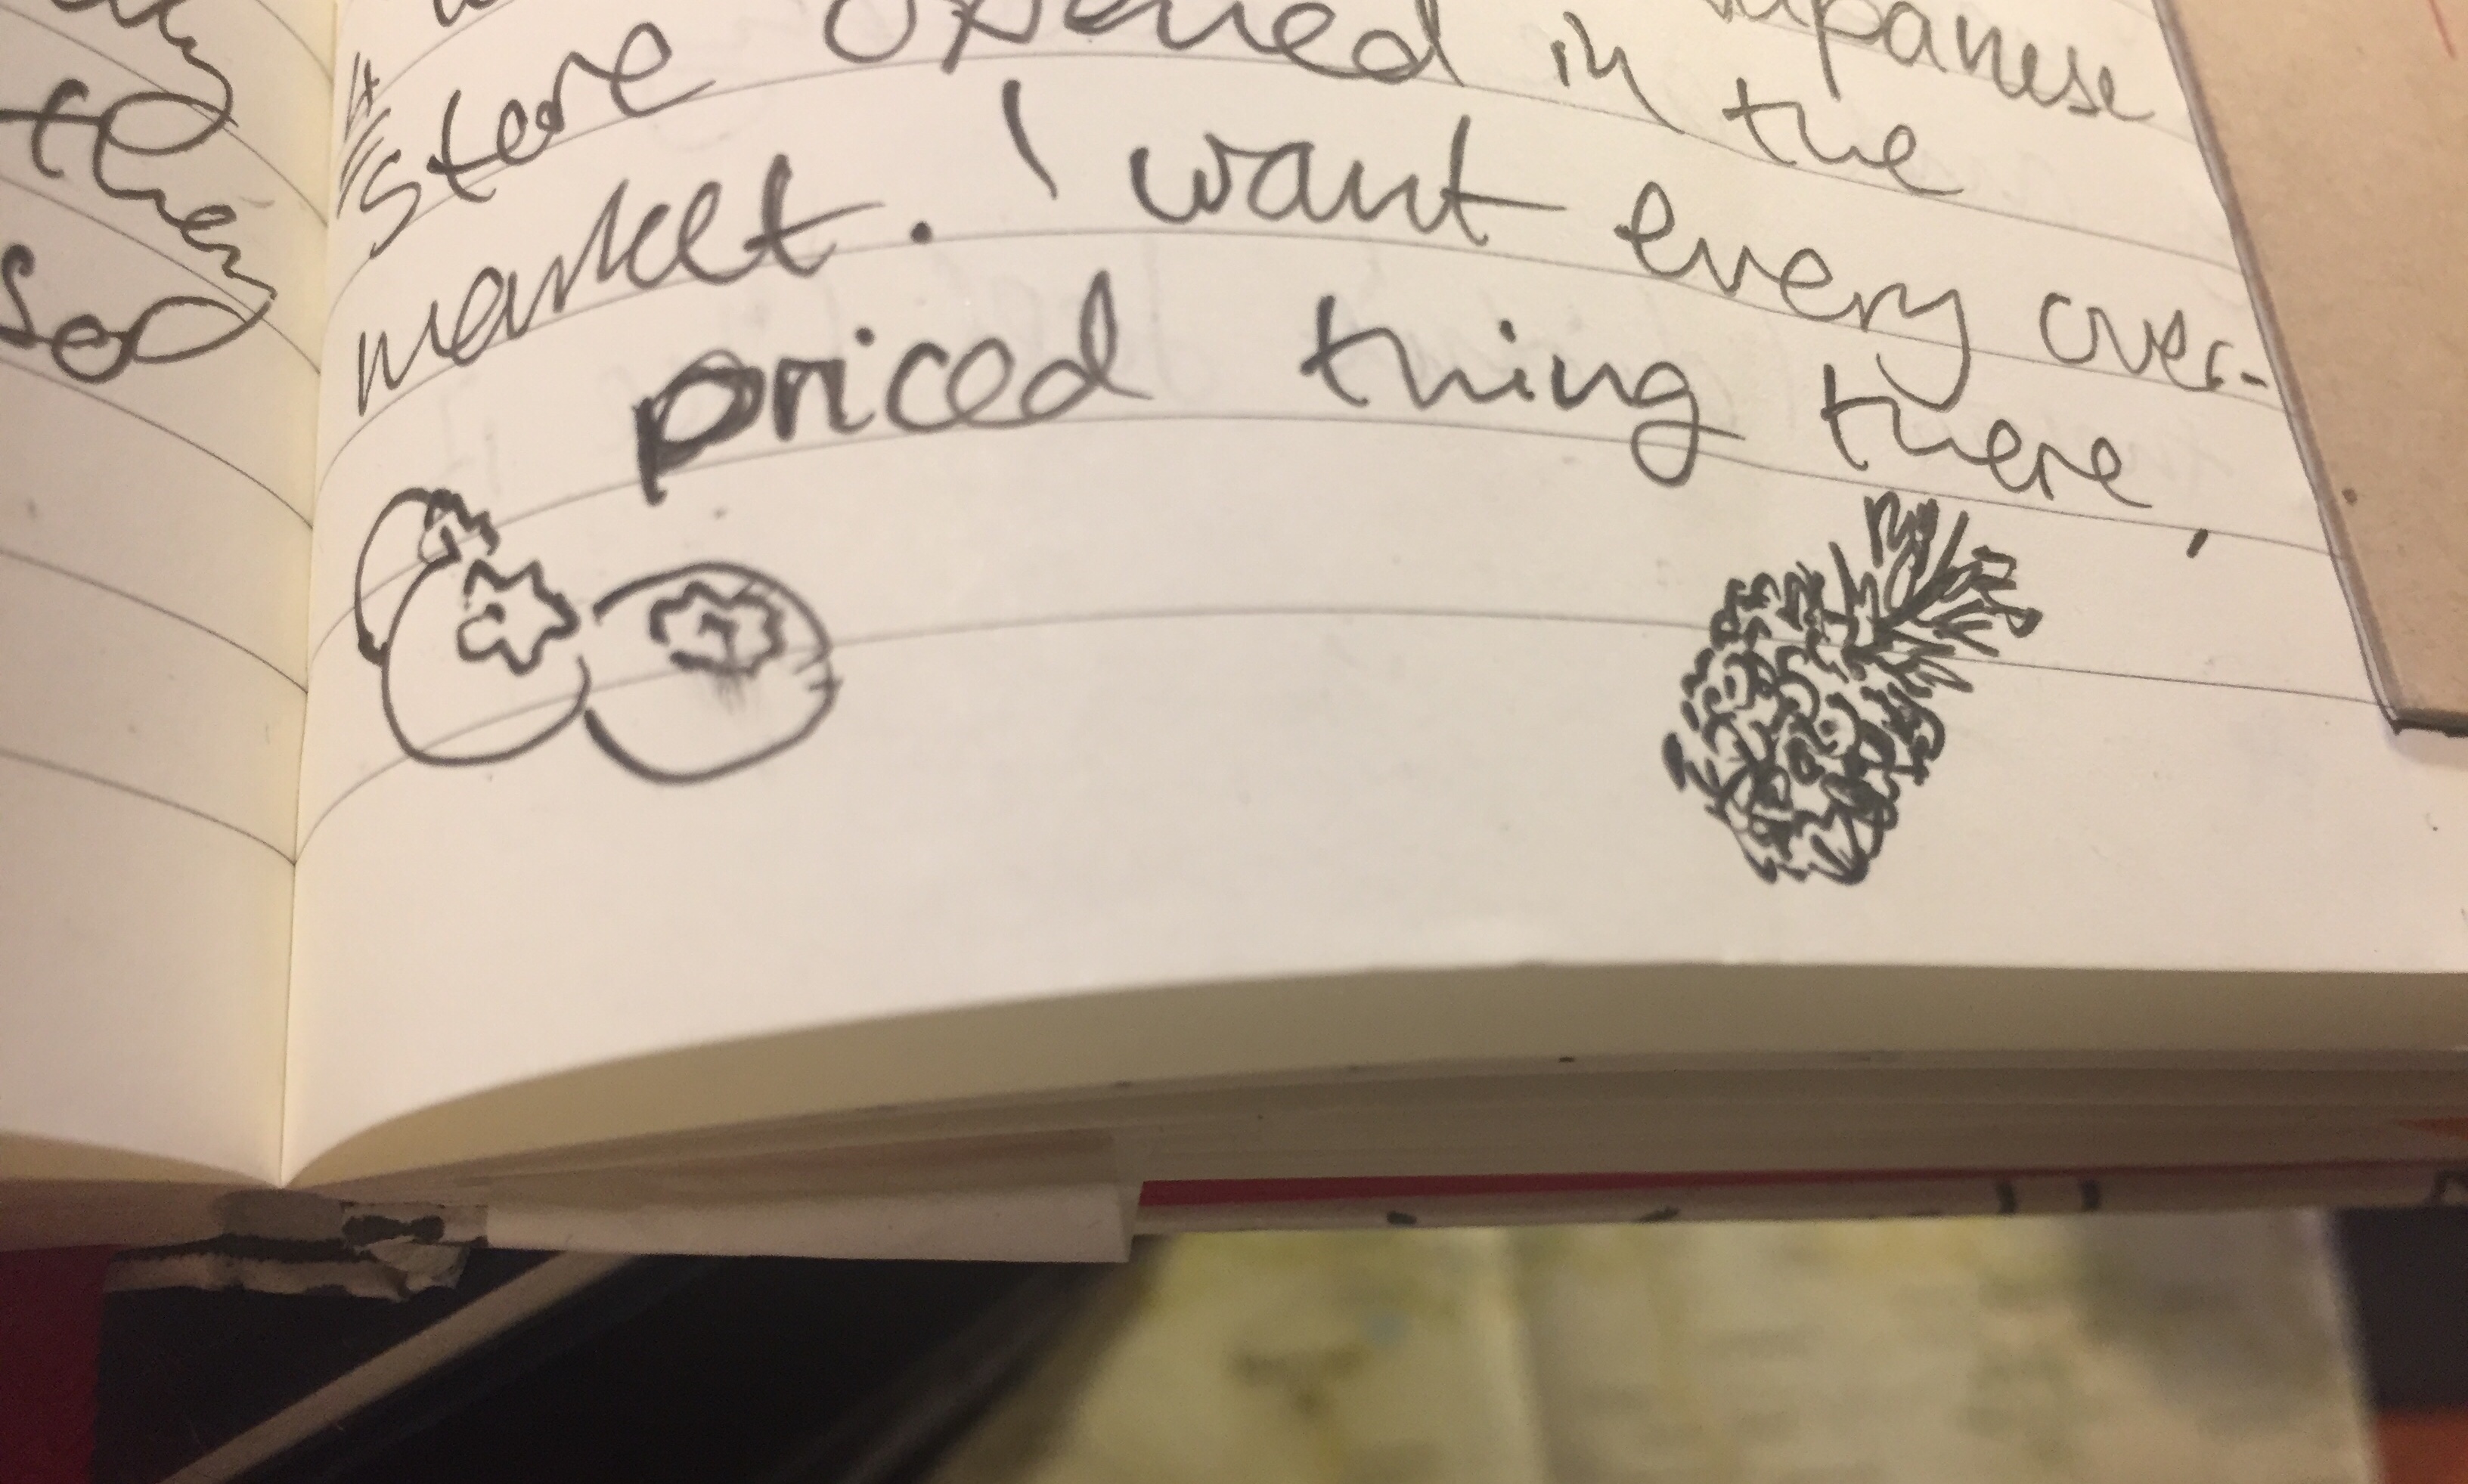 then
Japanese
store opened in the
market. I want every over-
priced thing there,